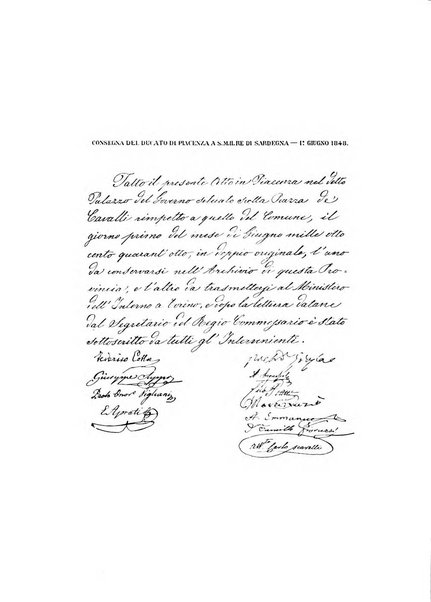 CONSEGNA DEL DUCATO DI PIACENZA A S.M. IL RE DI SARDEGNA — 1º GIUGNO 1848.
Fatto il presente Atto in Piacenza nel detto
Palazzo del Governo situato sulla Piazza de
Cavalli rimpetto a quello del Comune, il
giorno primo del mese di Giugno mille otto
cento quarant'otto, in doppio originale, l'uno
da conservarsi nell'Archivio di questa Pro-
vincia, e l'altro da trasmettersi al Ministero
dell'Interno a Torino, e dopo la lettura datane
dal Segretario del Regio Commissario è stato
sottoscritto da tutti gl'Intervenienti.
Federico Colla
Giuseppe
Paolo Onor. Vigliani
A. Emmanueli
Camillo
Carlo